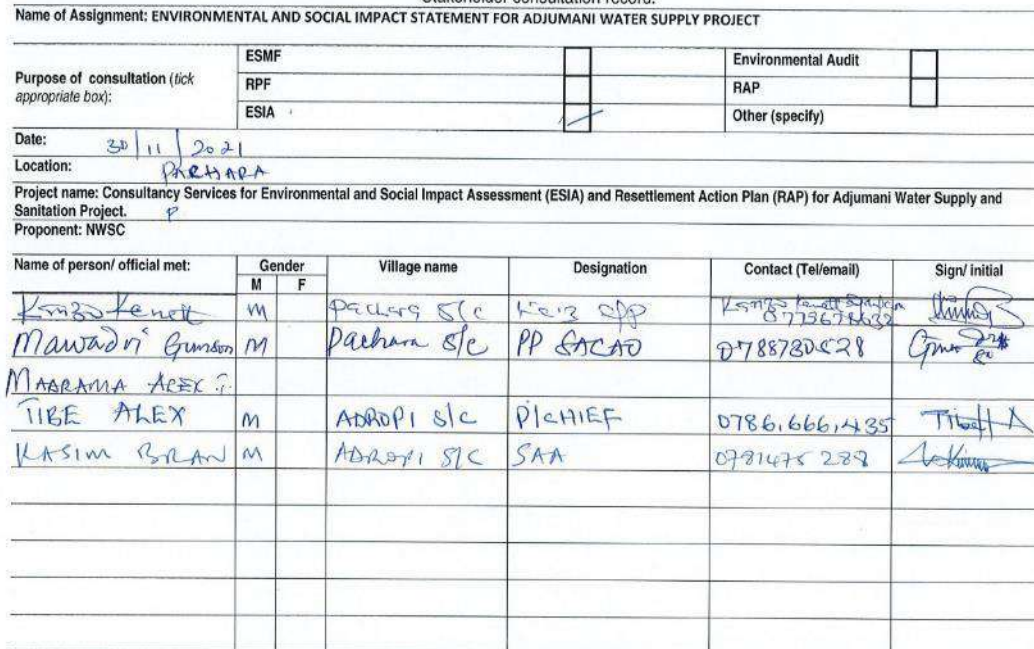 Stakeholder consultation record.
Name of Assignment: ENVIRONMENTAL AND SOCIAL IMPACT STATEMENT FOR ADJUMANI WATER SUPPLY PROJECT
Purpose of consultation (tick appropriate box):
ESMF
Environmental Audit
RPF
RAP
ESIA
Other (specify)
Date: 30/11/2021
Location:
Project name: Consultancy Services for Environmental and Social Impact Assessment (ESIA) and Resettlement Action Plan (RAP) for Adjumani Water Supply and
Sanitation Project.
Proponent: NWSC
Name of person/ official met: Gender Village name Designation Contact (Tel/email) Sign/ initial
M F
M S/C
Mawadri M Pachara S/C PP SACAO 0788730528
ALEX
TIBE ALEX M ADROPI S/C P/CHIEF 0786,666,435
KASIM BRAN M ADROPI S/C SAA 0781475 288